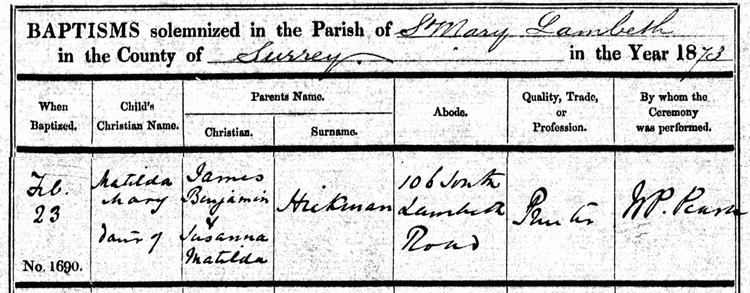 BAPTISMS solemnized in the Parish of St Mary Lambeth
in the County of Surrey in the Year 1873
When Baptized.
Child's Christian Name.
Parents Name.
Christian.
Surname.
Abode.
Quality, Trade, or Profession.
By whom the Ceremony was performed.
Feb.
23
No. 1690.
Matilda
Mary
Daur of
James
Benjamin
&
Susanna
Matilda
Hickman
106 South
Lambeth
Road
W.P.